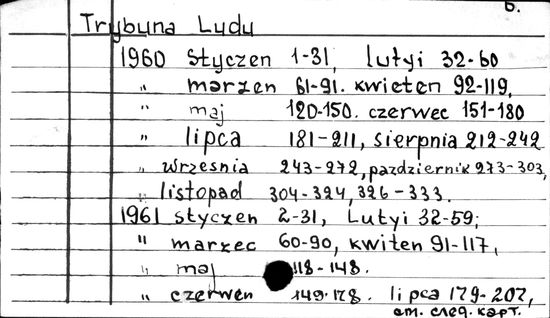 6.
Trybuna Ludu
1960 styczen 1-31, lutyi 32-60
" marzen 61-91. kwieten 92-119,
" maj 120-150. czerwec 151-180
" lipca 181-211, sierpnia 212-242
" wrzesnia 243-272, pazdziernik 273-303,
" listopad 304-324, 326-333.
1961 styczen 2-31, Lutyi 32-59;
" marzec 60-90, kwiten 91-117,
" maj 118-148.
" czerwen 149-178. lipca 179-207,
см. след. карт.